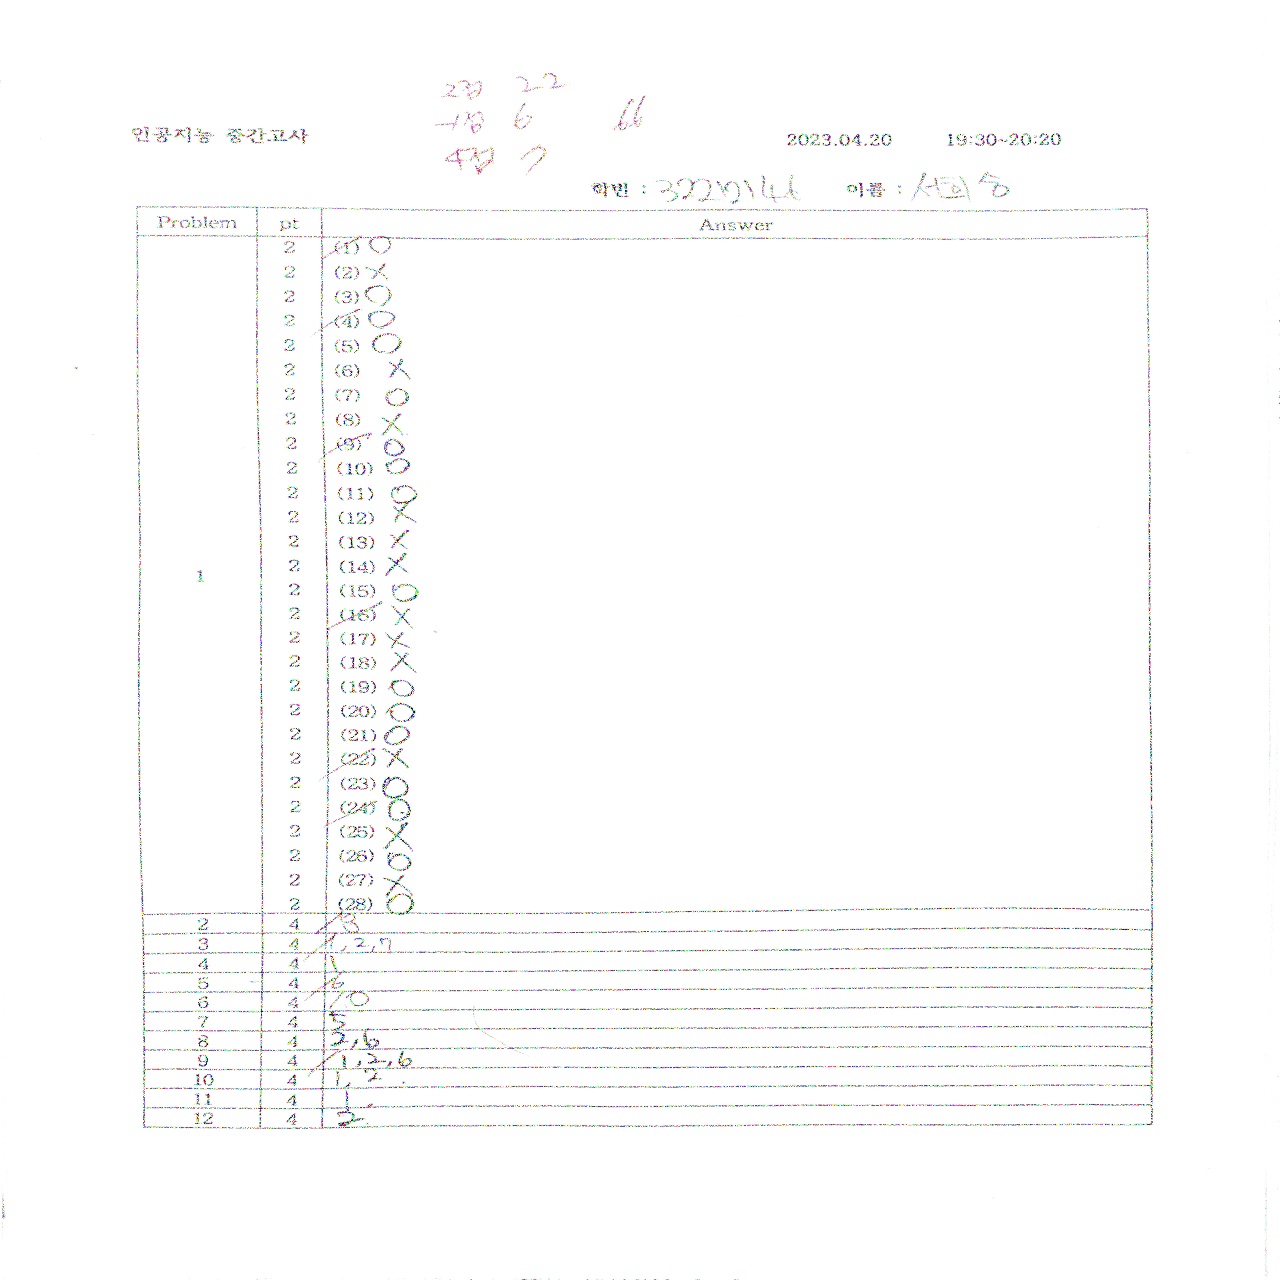 2점 22
-1점 6 66
4점 7
인공지능 중간고사 2023.04.20 19:30~20:20
학번 : 이름 :
Problem pt Answer
2 (1) O
2 (2) X
2 (3) O
2 (4) O
2 (5) O
2 (6) X
2 (7) O
2 (8) X
2 (9) O
2 (10) O
2 (11) O
2 (12) X
2 (13) X
1 2 (14) X
2 (15) O
2 (16) X
2 (17) X
2 (18) X
2 (19) O
2 (20) O
2 (21) O
2 (22) X
2 (23) O
2 (24) O
2 (25) X
2 (26) O
2 (27) X
2 (28) O
2 4 3
3 4 1, 2, 7
4 4 1
5 4 6
6 4 10
7 4 5
8 4 2, 6
9 4 1, 2, 6
10 4 1, 2
11 4 1
12 4 2